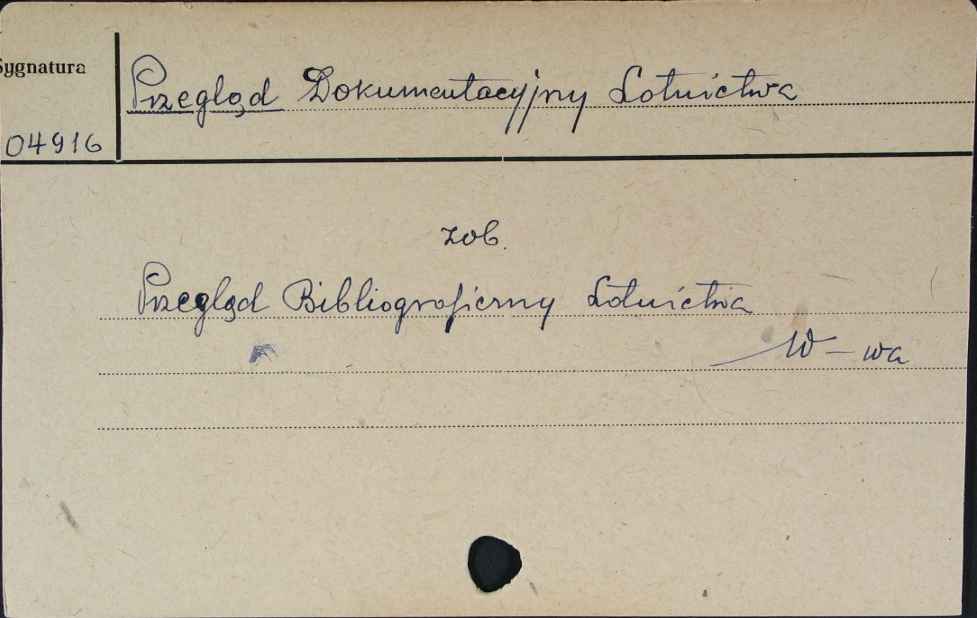 Sygnatura
Przegląd Dokumentacyjny Lotnictwa
04916
zob.
Przegląd Bibliograficzny Lotnictwa
W-wa